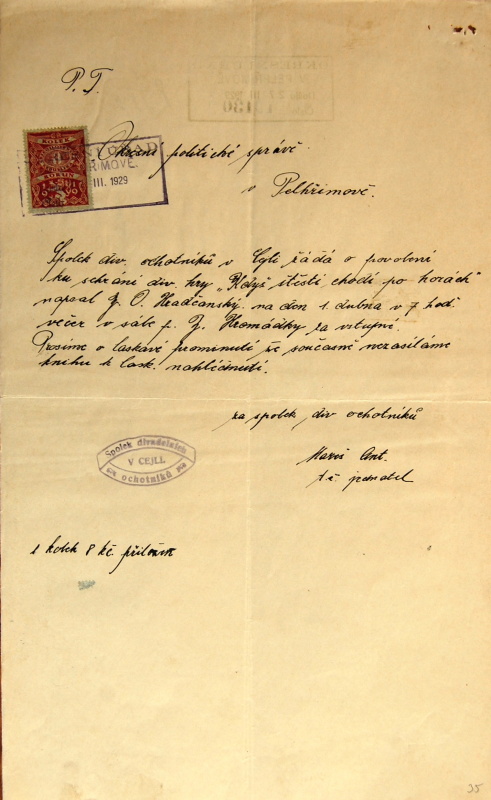 P. T.
Okresní politické správě
v Pelhřimově.
ŘIMOVĚ.
III. 1929
KOLEK
Spolek div. ochotníků v Cejli žádá o povolení
ku sehrání div. hry „Když štěstí chodí po horách"
napsal J. O. Hradčanský na den 1. dubna v 7 hod
večer v sále p. J. Hromádky za vstupné.
Prosíme o laskavé prominutí že současně nezasíláme
knihu k lask. nahlédnutí.
za spolek div ochotníků
Spolek divadelních
V CEJLI.
ochotníků
Ant.
t. č. jednatel
1 kolek 8 kč. přiložen
35